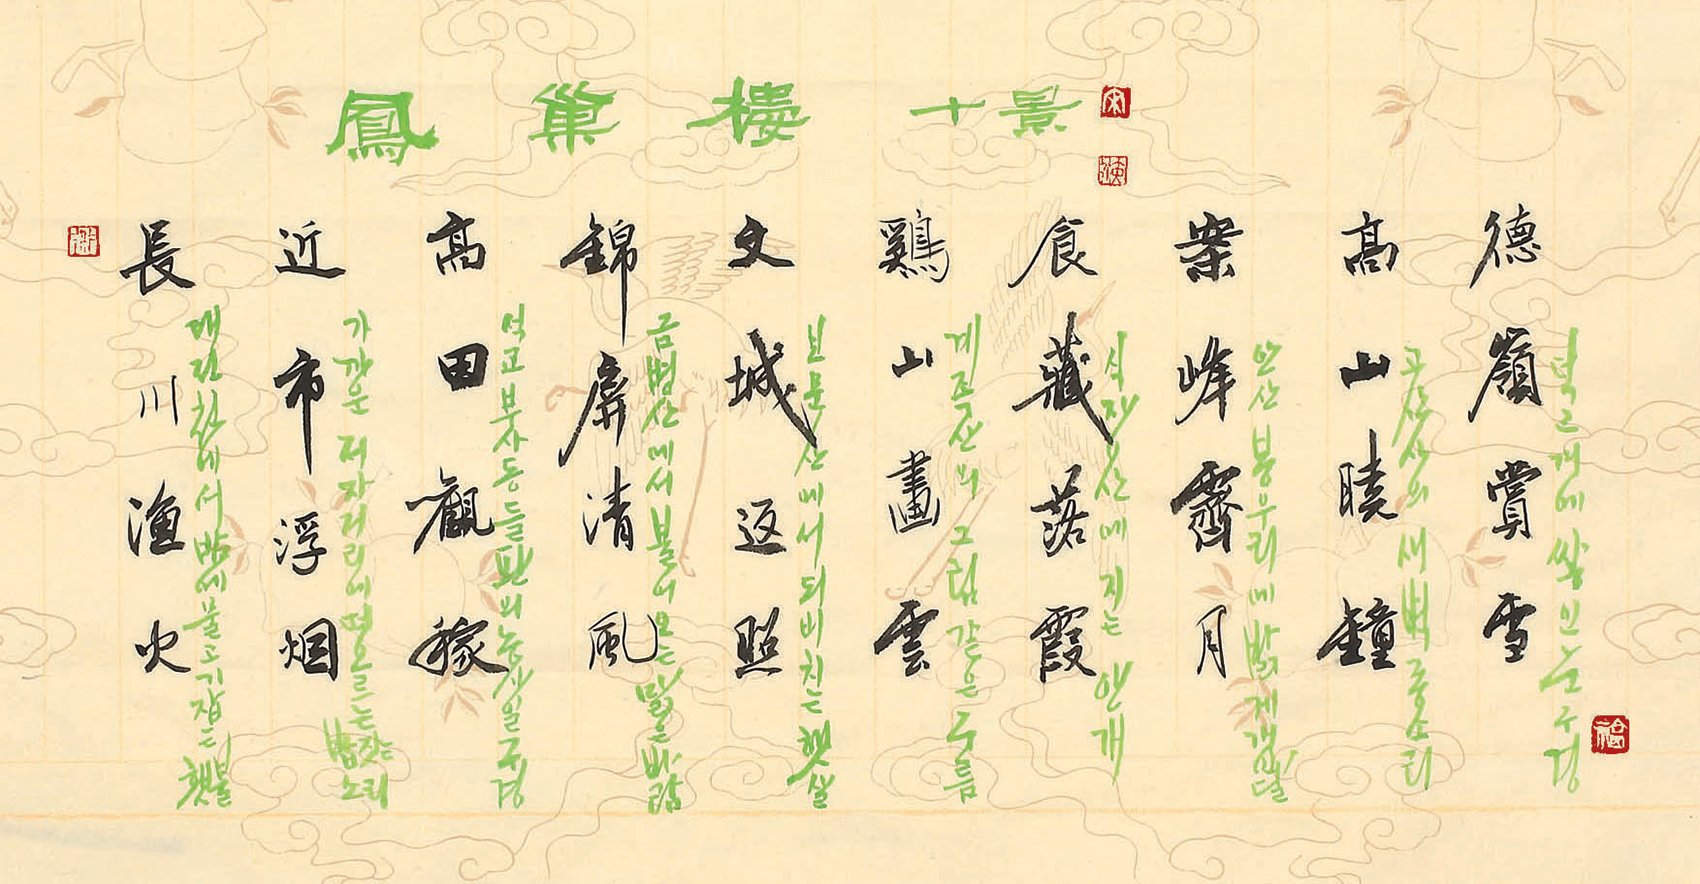 鳳巢樓十景
德嶺賞雪
덕고개에 쌓인 눈 구경
高山曉鐘
고산사의 새벽 종소리
案峰霽月
안산 봉우리에 밝게 갠 달
食藏落霞
식장산에 지는 안개
鷄山畵雲
계족산의 그림같은 구름
文城返照
보문산에서 되비치는 햇살
錦屛淸風
금병산에서 불어오는 맑은 바람
高田觀稼
석교 봉사동 들판의 농삿일 구경
近市浮烟
가까운 저자거리에 떠오르는 밥짓는
長川漁火
대전천에서 밤에 물고기 잡는 횃불